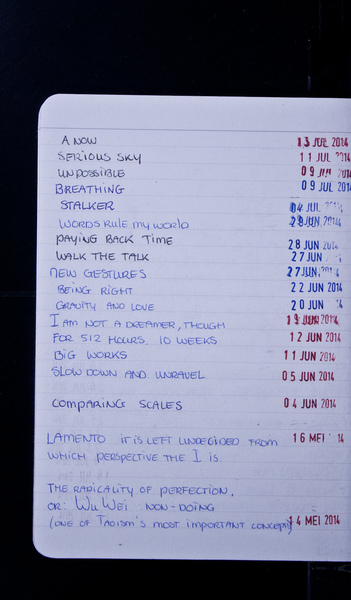 A NOW 13 JUL 2014
SERIOUS SKY 11 JUL 2014
UNPOSSIBLE 09 JUL 2014
BREATHING 09 JUL 2014
STALKER 04 JUL
WORDS RULE MY WORLD 28 JUN 2014
PAYING BACK TIME 28 JUN 2014
WALK THE TALK 27 JUN
NEW GESTURES 27 JUN 2014
BEING RIGHT 22 JUN 2014
GRAVITY AND LOVE 20 JUN
I AM NOT A DREAMER, THOUGH 19 JUN 2014
FOR 512 HOURS. 10 WEEKS 12 JUN 2014
BIG WORKS 11 JUN 2014
SLOW DOWN AND UNRAVEL 05 JUN 2014
COMPARING SCALES 04 JUN 2014
LAMENTO IT IS LEFT UNDECIDED FROM 16 MEI 14
WHICH PERSPECTIVE THE I IS.
THE RADICALITY OF PERFECTION,
OR: WU WEI NON-DOING
(ONE OF TAOISM'S MOST IMPORTANT CONCEPTS) 14 MEI 2014